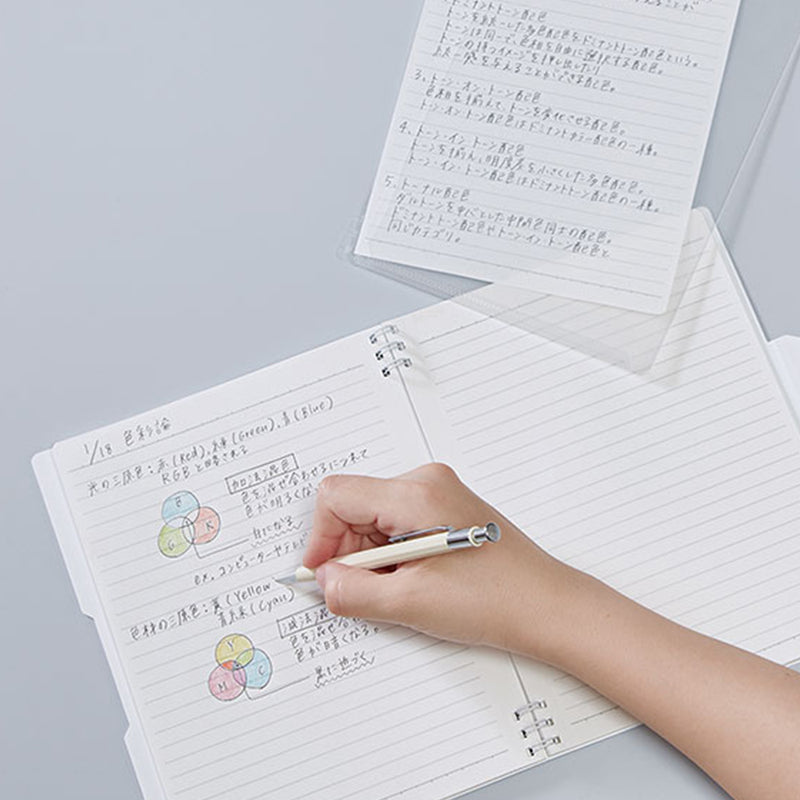 トーンを統一した多色配色をドミナントトーン配色という。
トーンは同一で、色相を自由に選択する配色。
トーンの持つイメージを押し出したり
統一感を与えることができる配色。
3. トーン・オン・トーン配色
色相を揃えて、トーンを変化させる配色。
トーン・オン・トーン配色はドミナントカラー配色の一種。
4. トーン・イン・トーン配色
トーンを揃え、明度差を小さくした多色配色。
トーン・イン・トーン配色はドミナントトーン配色の一種。
5. トーナル配色
ダルトーンを中心とした中間色同士の配色。
ドミナントトーン配色やトーンイントーン配色と
同じカテゴリ。
1/18 色彩論
光の三原色：赤(Red)、緑(Green)、青(Blue)
RGBと略される
加法混色
色を混ぜ合わせるにつれて
色が明るくな
白になる
B
R
G
ex. コンピューターやテレビ
色材の三原色：黄(Yellow
青緑(Cyan)
減法混
色を混ぜ合
色が暗くなる。
黒に近づく
Y
M
C